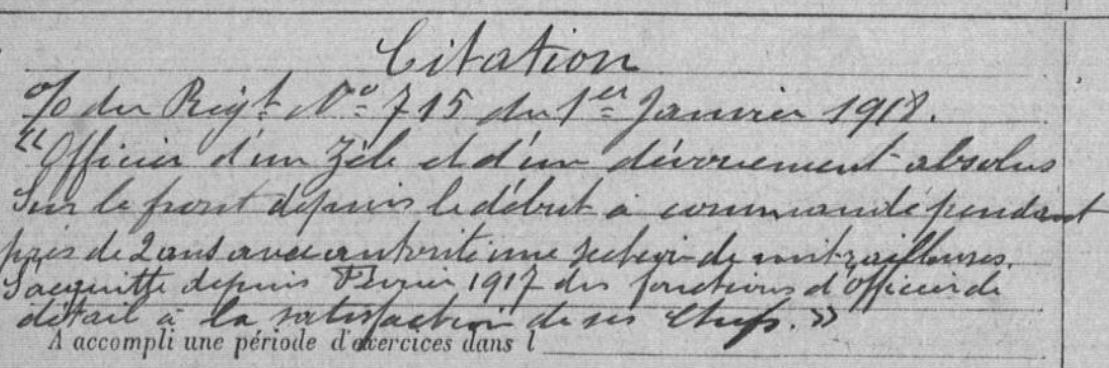 Citation
O/ du Régt. N° 715 du 1er Janvier 1918.
"Officier d'un zèle et d'un dévouement absolus
Sur le front depuis le début a commandé pendant
près de 2 ans avec autorité une section de mitrailleuses.
S'acquitte depuis Février 1917 des fonctions d'Officier de
détail à la satisfaction de ses Chefs."
A accompli une période d'exercices dans l